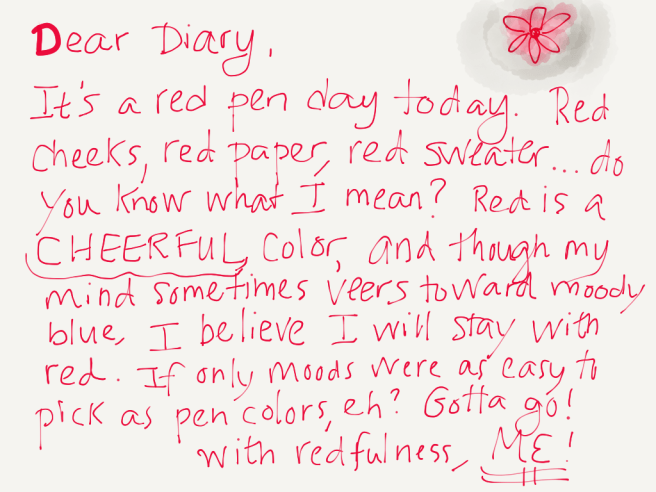 Dear Diary,
It's a red pen day today. Red
cheeks, red paper, red sweater... do
you know what I mean? Red is a
CHEERFUL color, and though my
mind sometimes veers toward moody
blue, I believe I will stay with
red. If only moods were as easy to
pick as pen colors, eh? Gotta go!
with redfulness, ME!